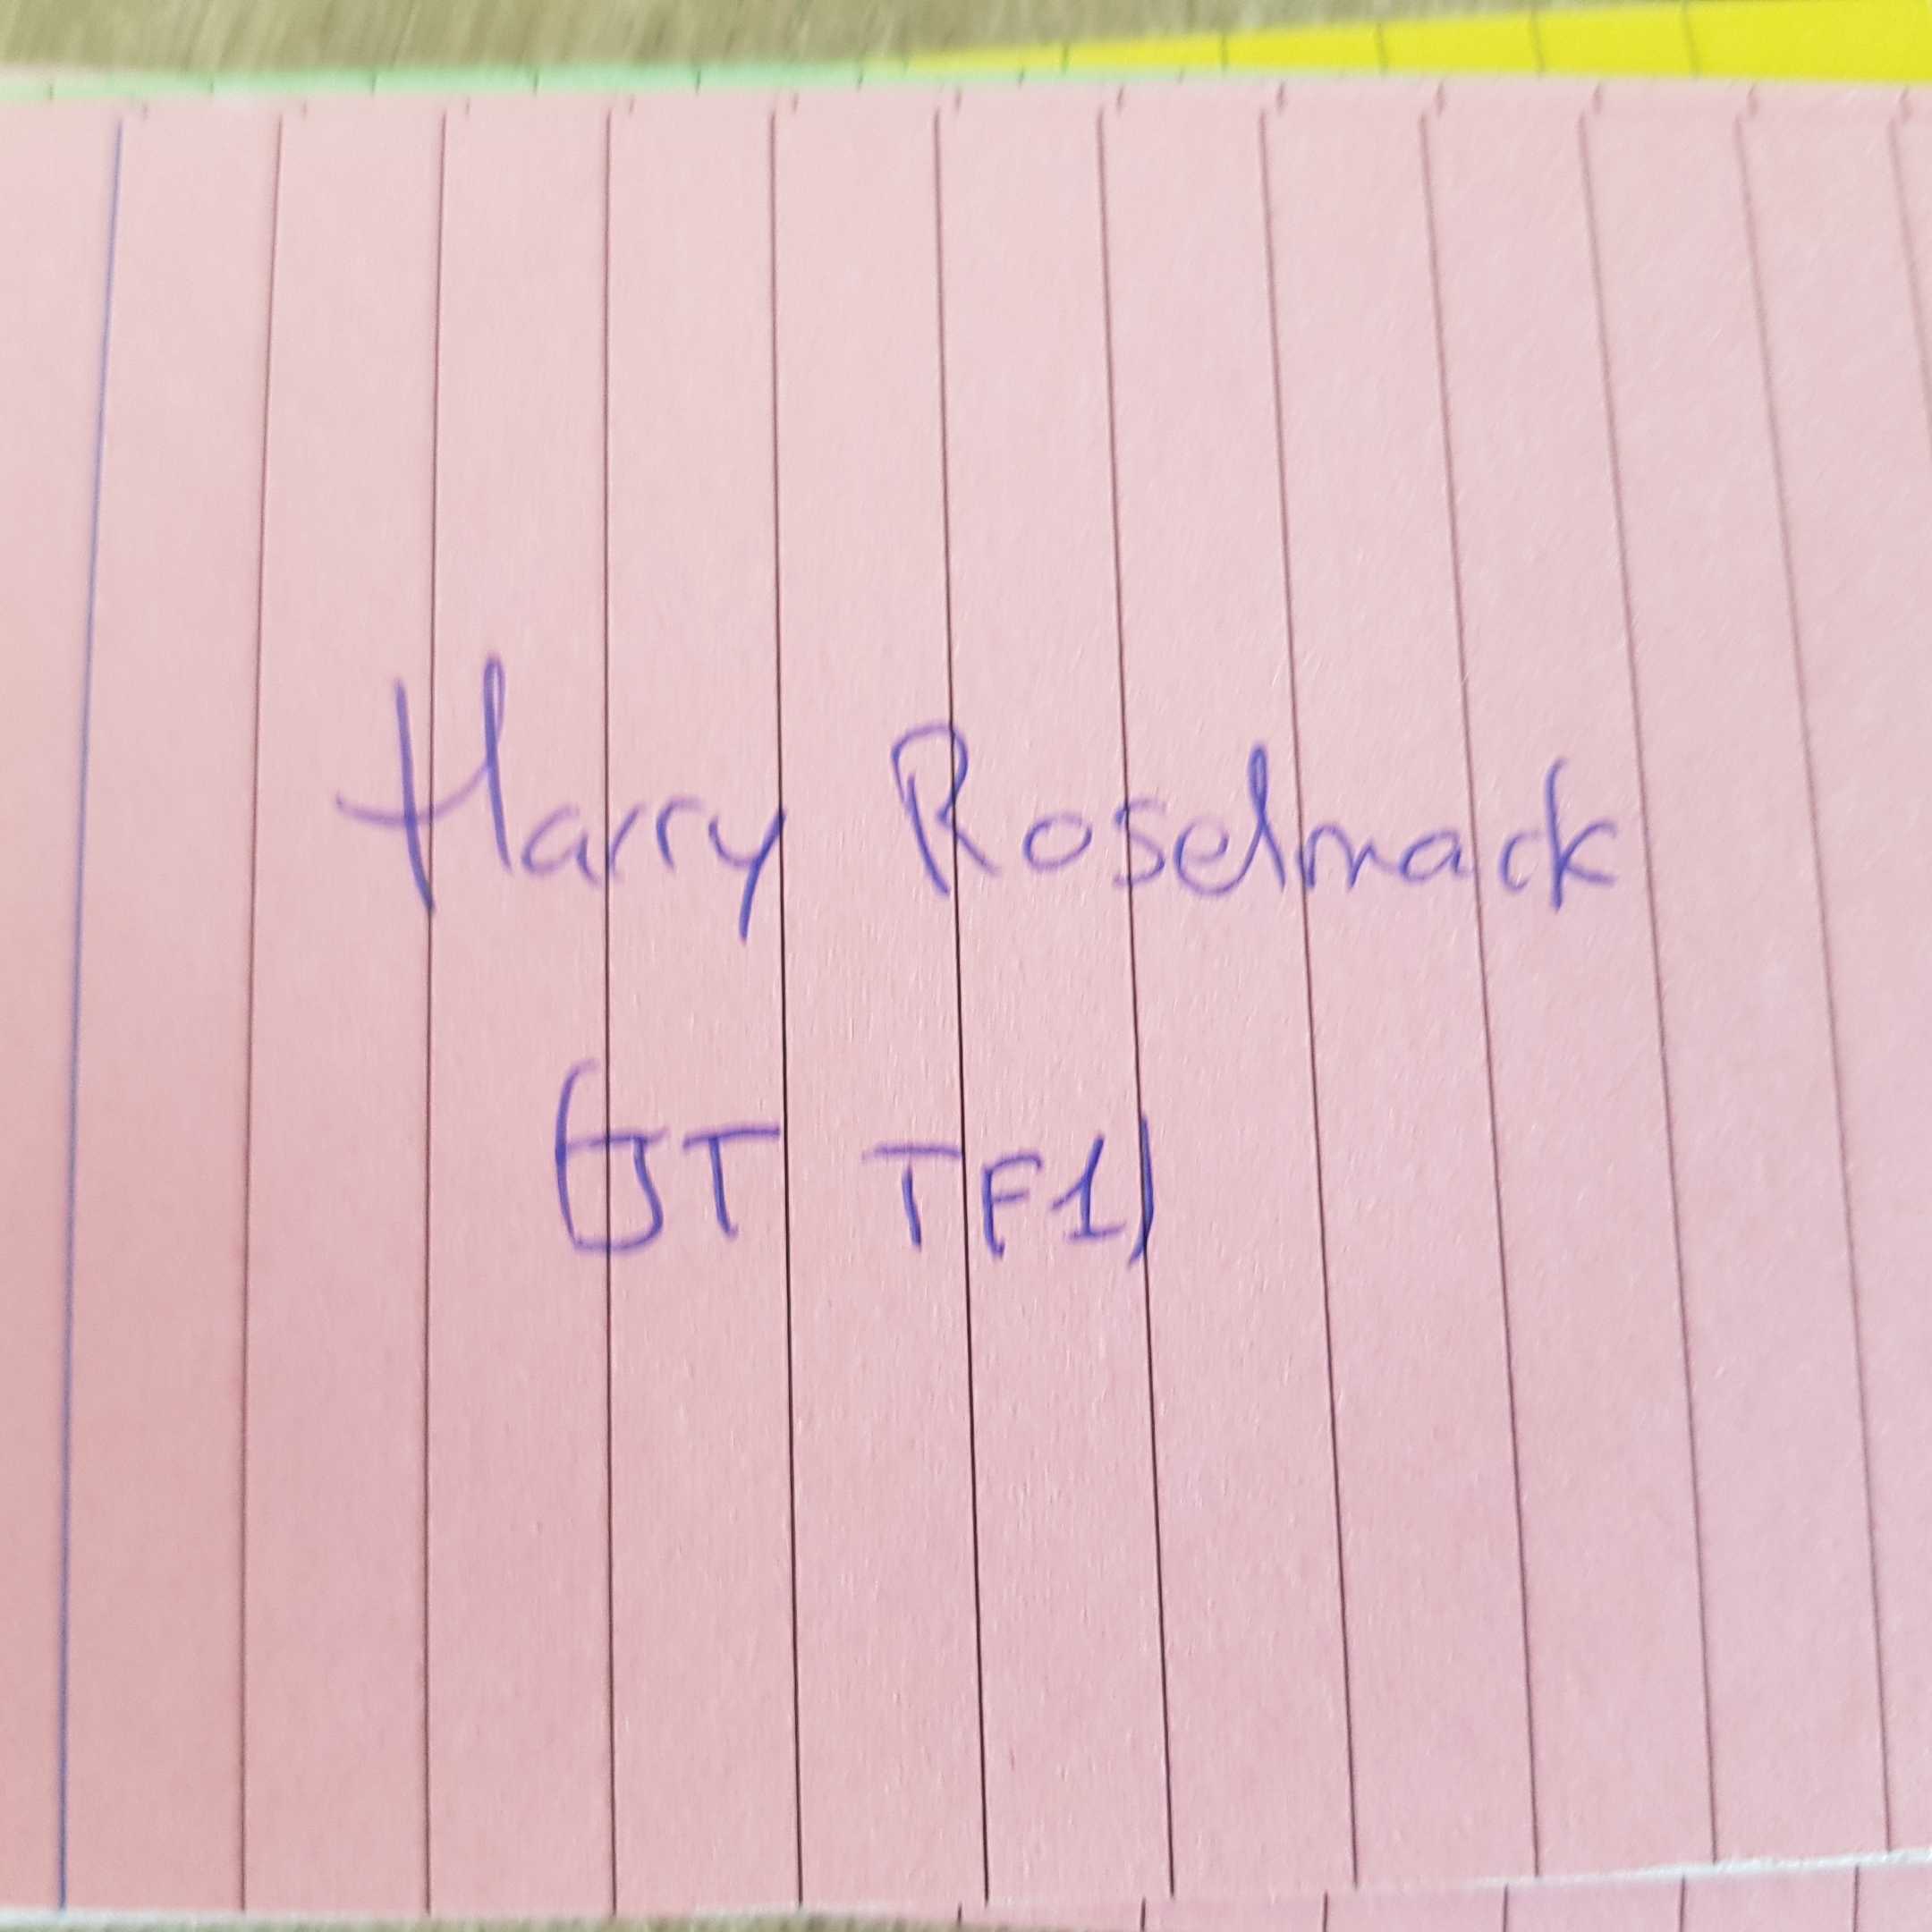 Harry Roselmack
(JT TF1)